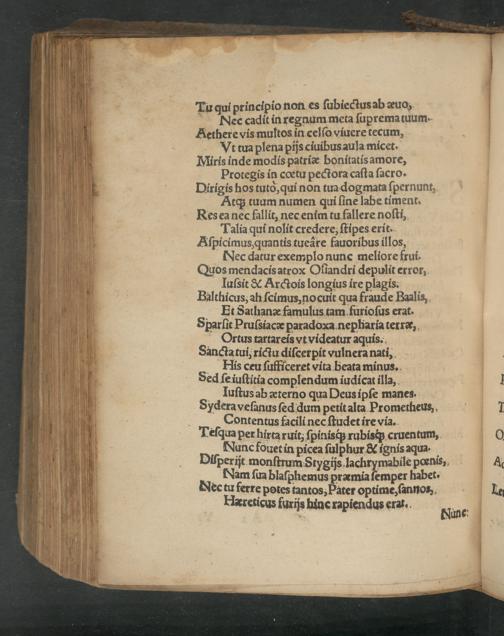 Tu qui principio non es subiectus ab æuo,
Nec cadit in regnum meta suprema tuum.
Aethere vis multos in celso viuere tecum,
Vt tua plena pijs ciuibus aula micet.
Miris inde modis patriæ bonitatis amore,
Protegis in cœtu pectora casta sacro.
Dirigis hos tutò, qui non tua dogmata spernunt,
Atqꝫ tuum numen qui sine labe timent.
Res ea nec fallit, nec enim tu fallere nosti,
Talia qui nolit credere, stipes erit.
Aspicimus, quantis tueâre fauoribus illos,
Nec datur exemplo nunc meliore frui.
Quos mendacis atrox Osiandri depulit error,
Iussit & Arctois longius ire plagis.
Balthicus, ah scimus, nocuit qua fraude Baalis,
Et Sathanæ famulus tam furiosus erat.
Sparsit Prussiacæ paradoxa nepharia terræ,
Ortus tartareis vt videatur aquis.
Sancta tui, rictu discerpit vulnera nati,
His ceu sufficeret vita beata minus.
Sed se iustitia complendum iudicat illa,
Iustus ab æterno qua Deus ipse manes.
Sydera vesanus sed dum petit alta Prometheus,
Contentus facili nec studet ire via.
Tesqua per hirta ruit, spinisqꝫ rubisqꝫ cruentum,
Nunc fouet in picea sulphur & ignis aqua.
Disperijt monstrum Stygijs lachrymabile pœnis,
Nam sua blasphemus præmia semper habet.
Nec tu ferre potes tantos, Pater optime, sannos,
Hæreticus furijs hinc rapiendus erat.
Nunc